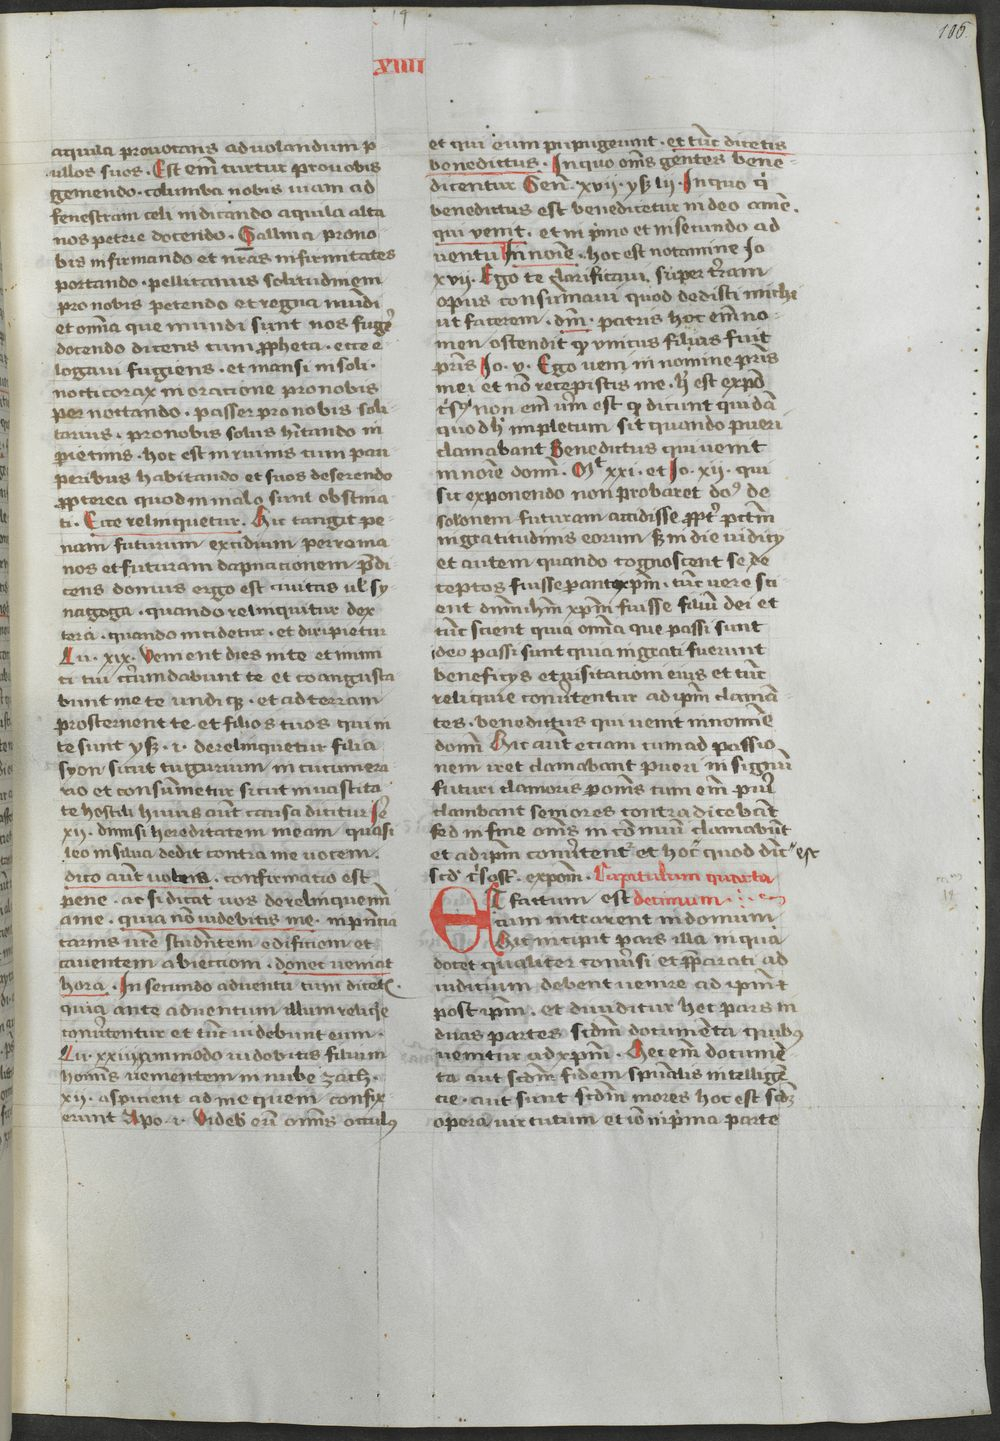 14
106
XIIII
aquila prouocans ad uolandum p
ullos suos. Est em̄ turtur pro uobis
gemendo. columba nobis uiam ad
fenestram celi indicando aquila alta
nos petere docendo. Gallina pro no
bis infirmando et nr̄as infirmitates
portando. pellicanus solitudinem
pro nobis petendo et regna mūdi
et om̄ia que mundi sunt nos fugeʳ
docendo dicens cum ꝓpheta. ecce e
longaui fugiens. et mansi in soli.
nocticorax in oracione pro nobis
per noctando. passer pro nobis soli
tarius. pro nobis solus hitando in
parietinis. hoc est in ruinis cum pau
peribus habitando et suos deserendo
ꝓpterea quod in malo sunt obstina
ti. Ecce relinquetur. Hic tangit pe
nam futurum excidium per roma
nos et futuram dapnacionem p̄di
cens domus ergo est ciuitas ul̄ sy
nagoga. quando relinquitur dex
tera. quando incidetur. et diripietur
Lu. xix. Venient dies in te et inimi
ci tui circumdabunt te et coangusta
bunt me te undiqꝫ. et ad terram
prosternent te. et filios tuos qui in
te sunt ysꝫ. i. derelinquetur filia
syon sicut tugurium in cucumera
rio et consumetur sicut in uastita
te hostili huius aūt causa dicitur Jeʳ
xii. dimisi hereditatem meam quasi
leo in silua dedit contra me uocem.
dico aūt uobis. confirmatio est
pene. ac si dicat uos derelinquemini
a me. quia nō uidebitis me. in p̄ncia
carnis ur̄e studentem edificiom et
cauentem abiectiom. donec ueniat
hora. In secundo aduentu cum dicetꝭ.
quia ante aduentum illum reliqe
conūtentur et tūc uidebunt eum.
Lu. xxiii ammodo uidebitis filium
hominis uenientem in nube zach.
xii. aspicient ad me quem confix
erunt Apo. i. Videbit eū omīs oculꝰ
et qui eum pupugerunt. et tūc dicetis
benedictus. In quo omīs gentes bene-
dicentur Gen̄. xvii. ysꝫ lii. In quo qi
benedictus est benedicetur in deo amē.
qui venit. et in primo et in secundo ad
uentu In noīe. hoc est notamine Jo
xvii. Ego te clarificaui super terram
opus consūmaui quod dedisti michi
ut facerem. dn̄i. patris hoc em̄ no-
men ostendit qꝫ vnicus filius fuit
pr̄is Jo. v. Ego veni in nomine pr̄is
mei et nō recepistis me. h est expō
cͥsy non em̄ uer̄ est qꝫ dicunt quidā
quod h impletum sit quando pueri
clamabant Benedictus qui uenit
in noīe domī. Mͭ xxi. et Jo. xii. qui
sic exponendo non probaret doꝰ de
solonem futuram accidisse ꝓpt̄ pctm̄
ingratitudinis eorum sꝫ in die iudicij
et autem quando cognoscent se de
ceptos fuisse per antixpm̄. tūc uere sci
ent dn̄m ihm̄ xpm̄ fuisse filiū dei et
tūc scient quia om̄ia que passi sunt
ideo passi sunt quia ingrati fuerunt
beneficijs et uisitationi eius et tūc
reliquie conūtentur ad ipm̄ clamā-
tes. benedictus qui uenit in nomīe
domī Hic aūt etiam cum ad passio
nem iret clamabant pueri in signū
futuri clamoris per omīs tum em̄ pueʳ
clambant seniores contradicebāt
sed in fine omīs in cōmuni clamabūt
et ad ipm̄ conūtentʳ et hoc quod dicͭ est
scd̄ cͥsost̄. expom̄. Capitulum quarta
Et factum est decimum
cum intrarent in domum
Hic incipit pars illa in qua
docet qualiter conūsi et ꝓparati ad
iudicium debent uenire ad ipm̄ t
post ipm̄. et diuiditur hec pars in
duas partes scdm̄ documēta quibꝰ
uenitur ad xpm̄. Hec em̄ documē-
ta aut scdm̄ fidem spūalis intelligē
cie. aut sunt scdm̄ mores hoc est scdꝫ
opera uirtutum et iō in p̄ima parte